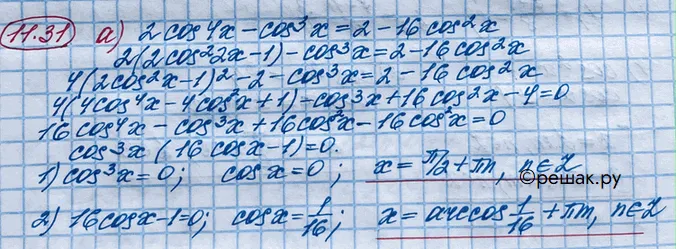 11.31 а) 2cos4x – cos³x = 2 – 16cos²x
2(2cos²2x–1) – cos³x = 2 – 16cos²x
4(2cos²x–1)² – 2 – cos³x = 2 – 16cos²x
4(4cos⁴x – 4cos²x + 1) – cos³x + 16cos²x – 4 = 0
16cos⁴x – cos³x + 16cos²x – 16cos²x = 0
cos³x (16cosx – 1) = 0.
1) cos³x = 0; cosx = 0; x = π/2 + πn, n∈Z
©решак.ру
2) 16cosx – 1 = 0; cosx = 1/16; x = arccos 1/16 + πn, n∈Z